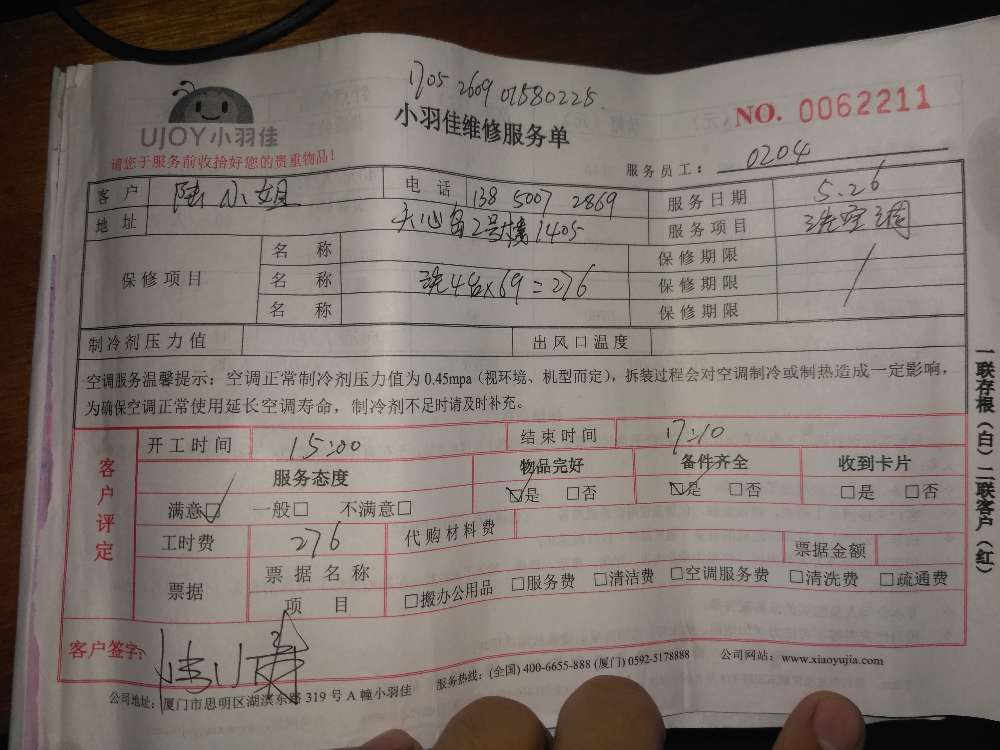 1705 2609 01580225.
UJOY小羽佳
小羽佳维修服务单
NO. 0062211
请您于服务前收拾好您的贵重物品!
服务员工: 0204
客户 陆小姐 电话 138 5007 2869 服务日期 5.26
地址 天心岛2号楼1405 服务项目 洗空调
保修项目 名称 保修期限
名称 洗4台x69=276 保修期限
名称 保修期限
制冷剂压力值 出风口温度
空调服务温馨提示:空调正常制冷剂压力值为0.45mpa(视环境、机型而定),拆装过程会对空调制冷或制热造成一定影响,
为确保空调正常使用延长空调寿命,制冷剂不足时请及时补充。
客户评定
开工时间 15:00 结束时间 17:10
服务态度 物品完好 备件齐全 收到卡片
满意☑ 一般□ 不满意□ ☑是 □否 ☑是 □否 □是 □否
工时费 276 代购材料费
票据 票据名称 票据金额
项目 □搬办公用品 □服务费 □清洁费 □空调服务费 □清洗费 □疏通费
客户签字:
公司地址:厦门市思明区湖滨东路319号A幢小羽佳 服务热线:(全国)400-6655-888 (厦门)0592-5178888 公司网站:www.xiaoyujia.com
一联存根(白)二联客户(红)